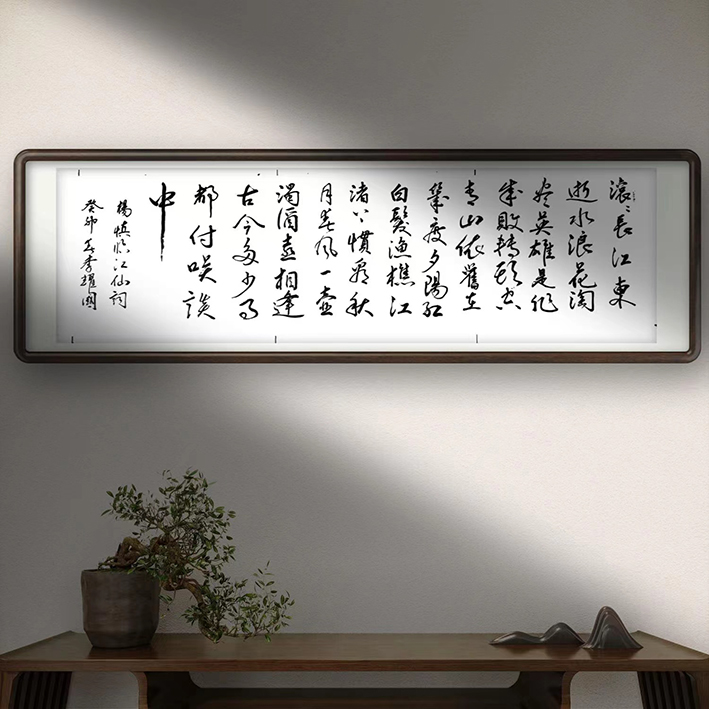 滚〻長江東
逝水浪花淘
尽英雄是非
成敗轉頭空
青山依舊在
幾度夕陽紅
白髮漁樵江
渚上慣看秋
月春风一壶
濁酒喜相逢
古今多少事
都付笑談
中
楊慎临江仙詞
癸卯李耀國